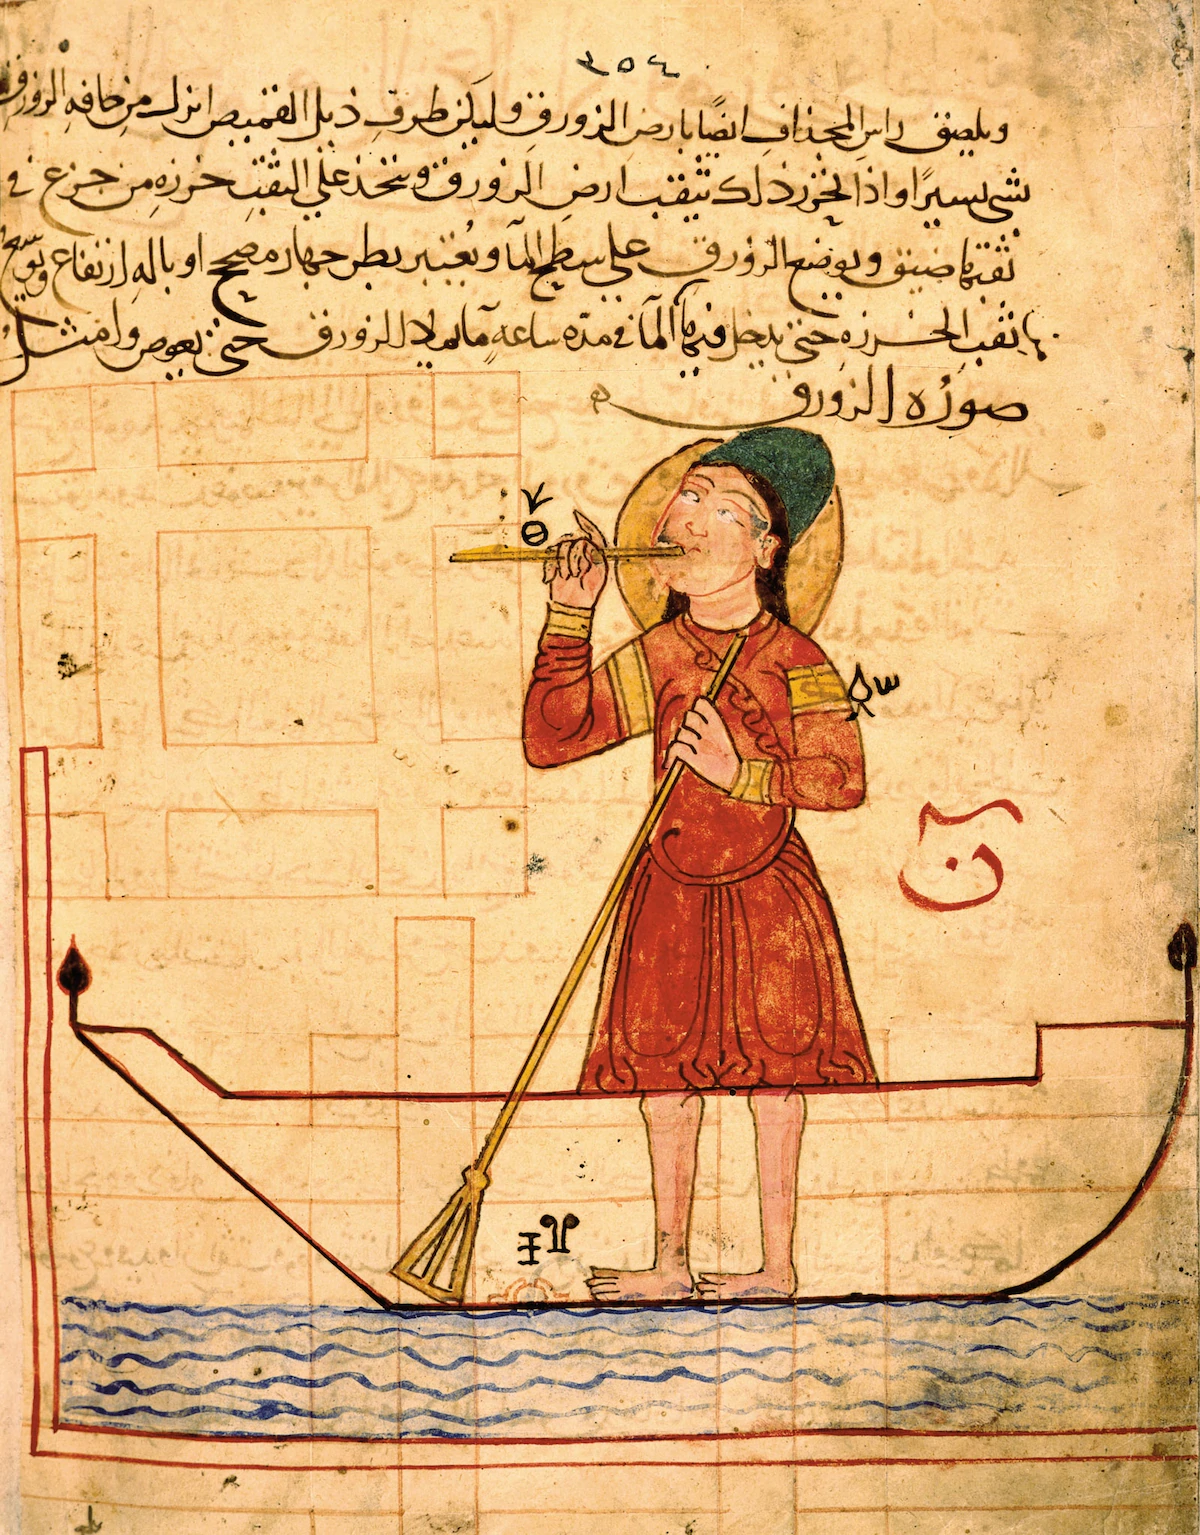 ٣٥٤
ويلصق راس المجذاف ايضًا بارض الزورق وليكن طرف ذيل القميص انزل من حافه الزورق
بشي يسير واذا ذلك تثقب ارض الزورق ويتخذ على الثقب خرزه من جزع في
ثقبها ضيق ويوضع الزورق على سطح المآ ويُعتبر بطرجهار مصحح او باله ارتفاع ويوسع
ثقب الخرزه حتى يدخل فيها المآ في مدة ساعةٍ ما يملا الزورق حتى يغوص وامثل
صورُه الزورق